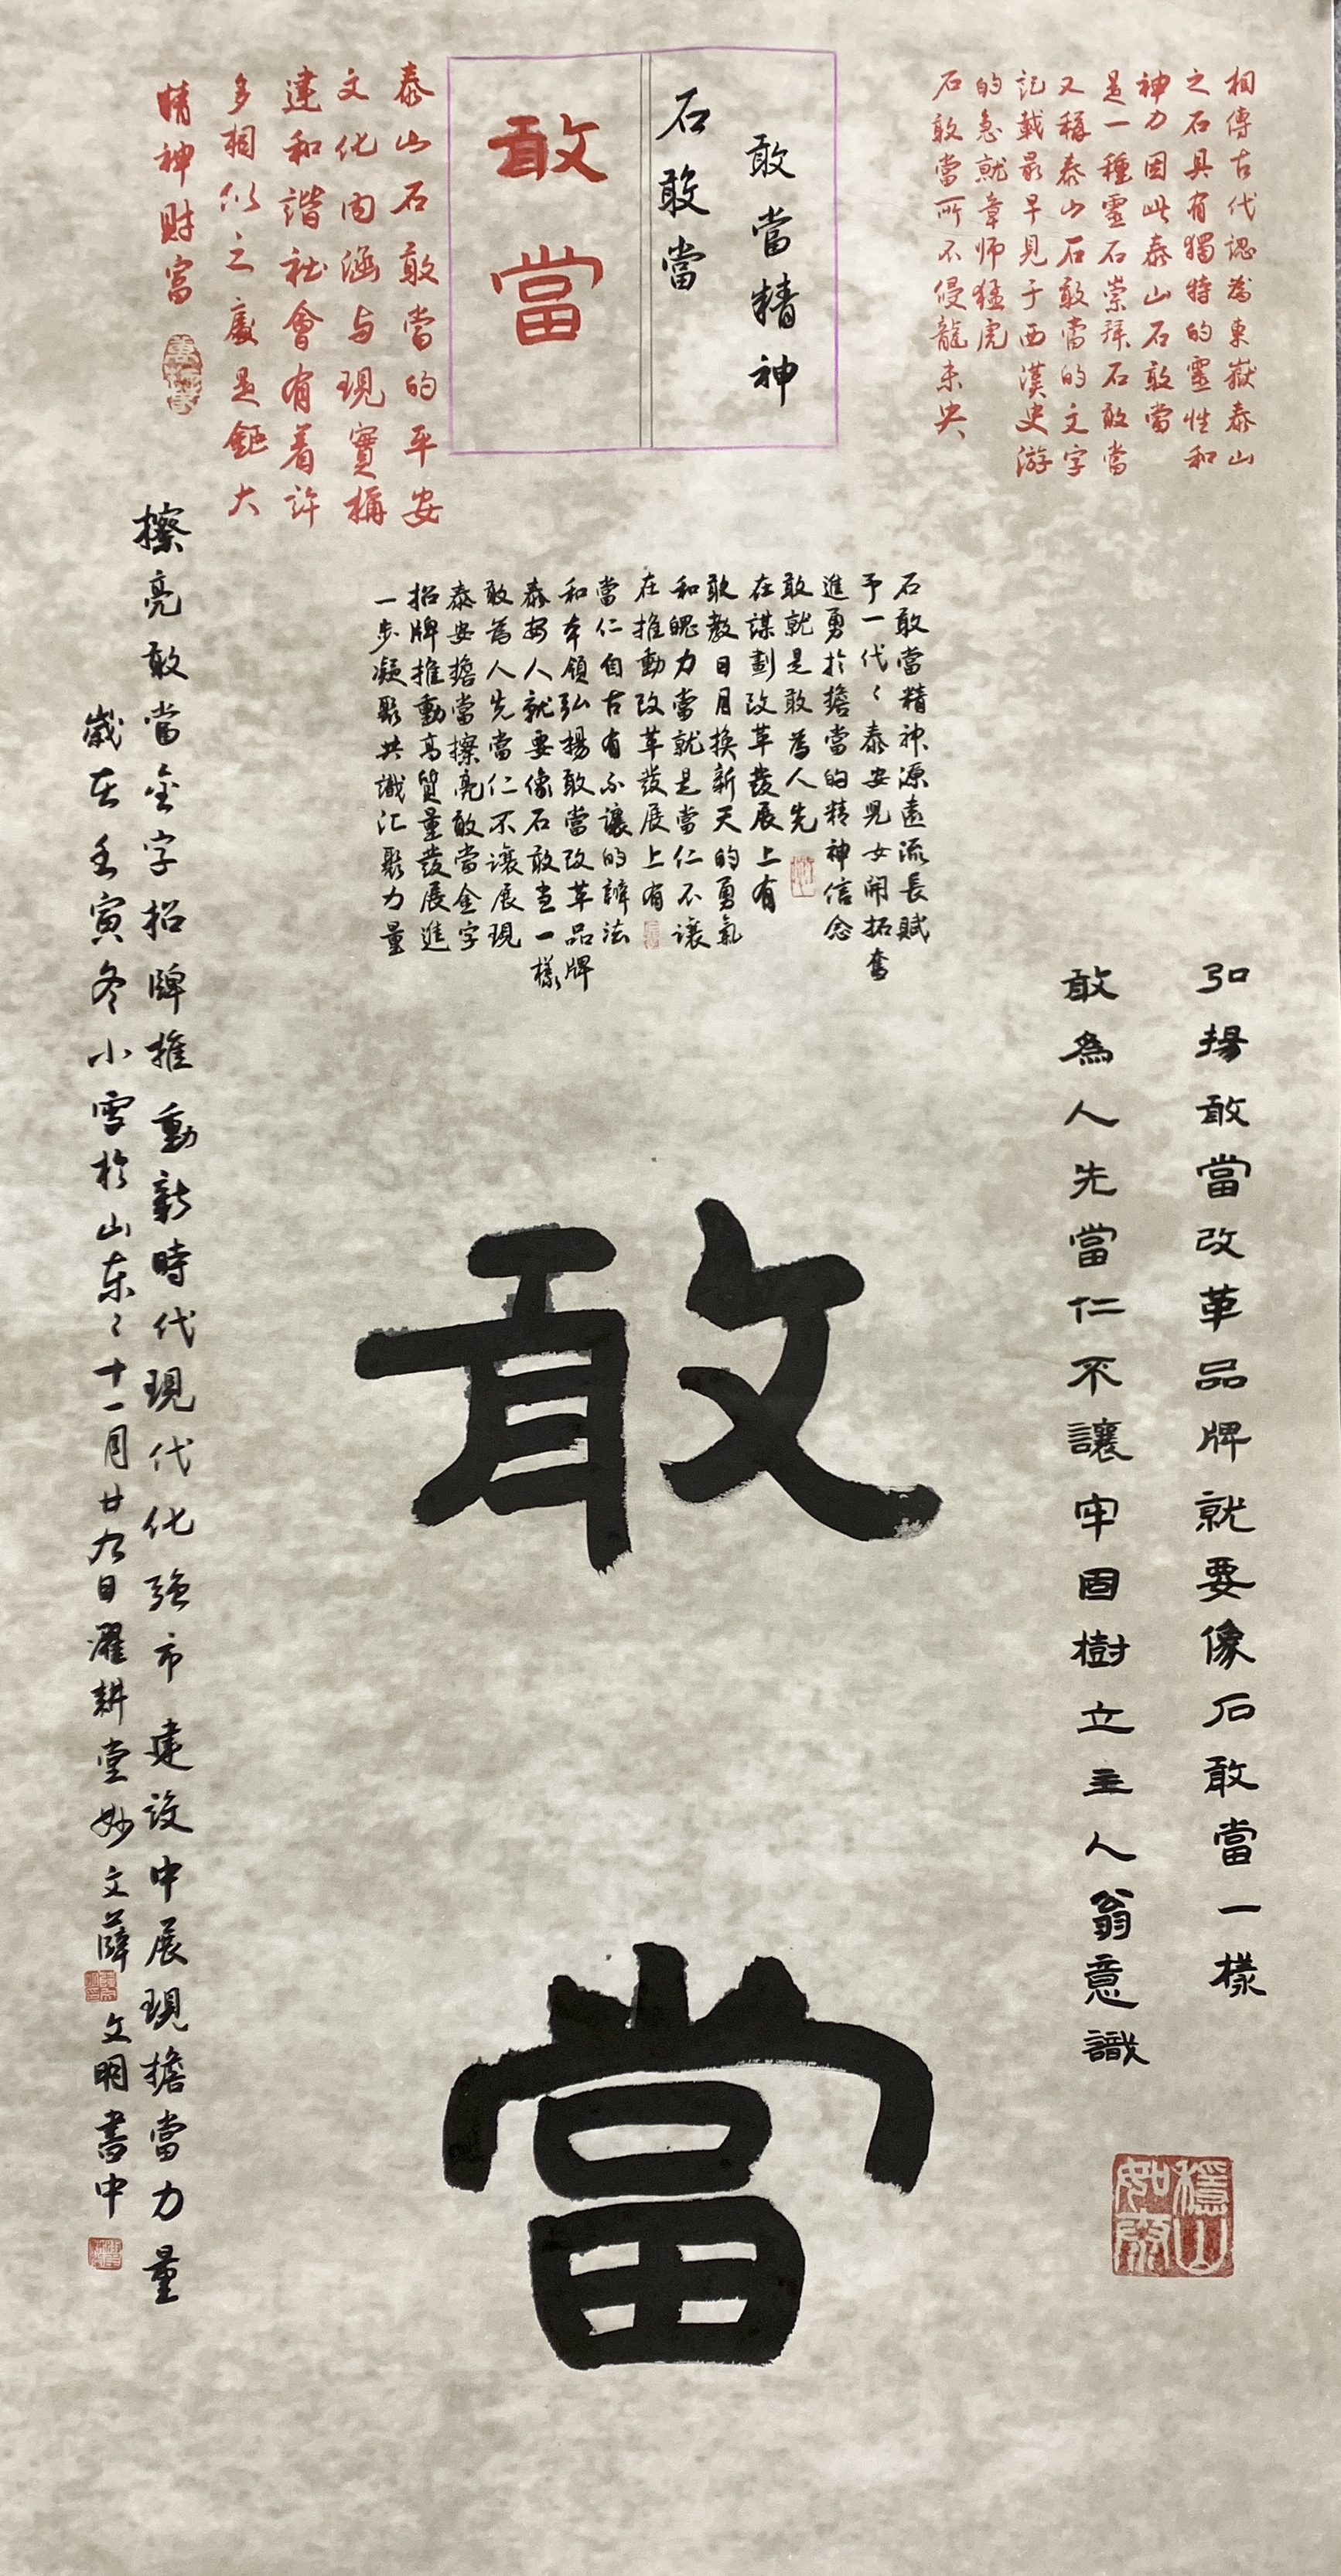 相傳古代認為東嶽泰山
之石具有獨特的靈性和
神力因此泰山石敢當
是一種靈石崇拜石敢當
又稱泰山石敢當的文字
記載最早見于西漢史游
的急就章师猛虎
石敢當所不侵龍未央
敢當精神
石敢當
敢當
泰山石敢當的平安
文化内涵与現實構
建和諧社會有着許
多相似之處是鉅大
精神財富
石敢當精神源遠流長賦
予一代〻泰安兒女開拓奮
進勇於擔當的精神信念
敢就是敢為人先
在謀劃改革發展上有
敢教日月换新天的勇氣
和魄力當就是當仁不讓
在推動改革發展上有
當仁自古有不讓的辦法
和本領弘揚敢當改革品牌
泰安人就要像石敢当一樣
敢為人先當仁不讓展現
泰安擔當擦亮敢當金字
招牌推動高質量發展進
一步凝聚共識汇聚力量
弘揚敢當改革品牌就要像石敢當一樣
敢為人先當仁不讓牢固樹立主人翁意識
敢當
擦亮敢當金字招牌推動新時代現代化強市建設中展現擔當力量
歲在壬寅冬小雪於山東〻十一月廿九日濯耕堂妙文薛文明書中